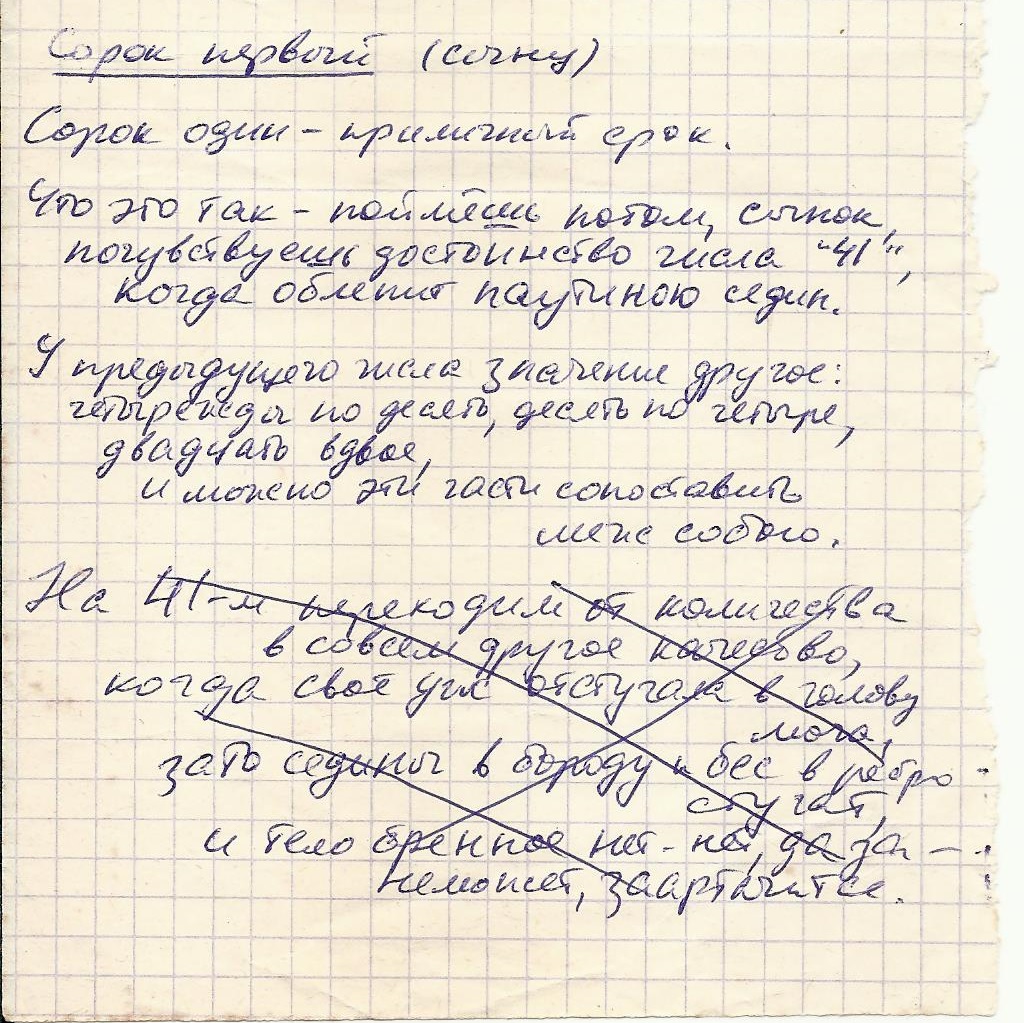 Сорок первый (сыну)
Сорок один – приличный срок.
Что это так – поймёшь потом, сынок,
почувствуешь достоинство числа "41",
когда облепит паутиною седин.
У предыдущего числа значение другое:
четырежды по десять, десять по четыре,
двадцать вдвое,
и можно эти части сопоставить
меж собою.
На 41-м переходим от количества
в совсем другое качество,
когда своё уж отстучала в голову
моча,
зато седины в бороду и бес в ребро
стучат,
и тело бренное нет-нет, да за-
неможет, заартачится.